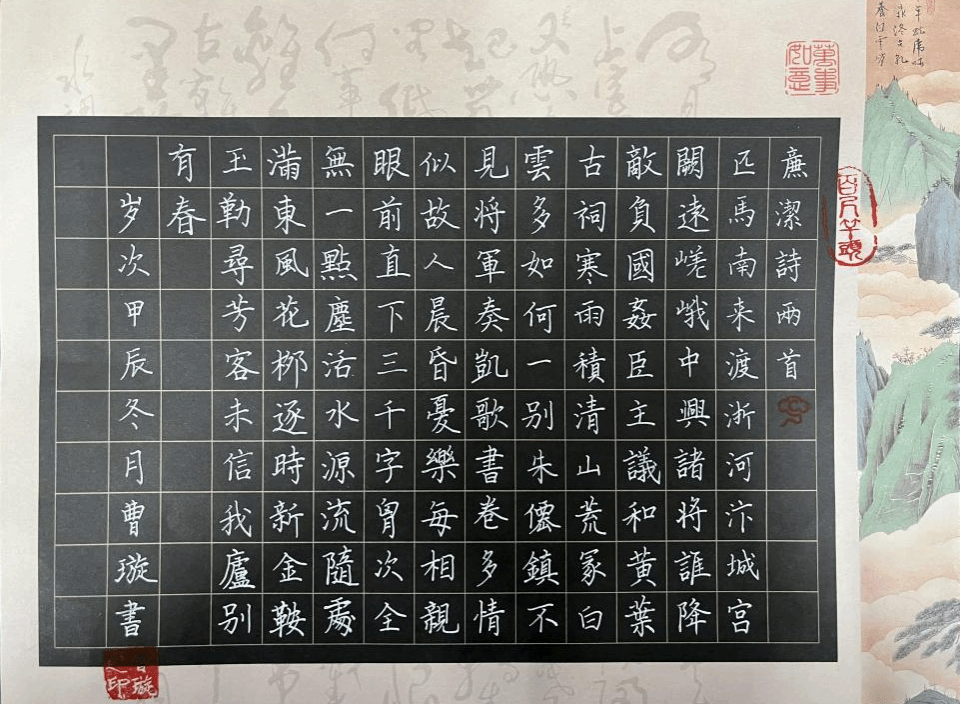 萬事如意
百尺竿頭
廉潔詩两首
匹馬南来渡浙河汴城宫
闕遠嵯峨中興諸将誰降
敵負國姦臣主議和黄葉
古祠寒雨積清山荒冢白
雲多如何一别朱僊鎮不
見将軍奏凱歌書卷多情
似故人晨昏憂樂每相親
眼前直下三千字胷次全
無一點塵活水源流隨處
滿東風花栁逐時新金鞍
玉勒尋芳客未信我廬别
有春
岁次甲辰冬月曹璇書
曹璇之印